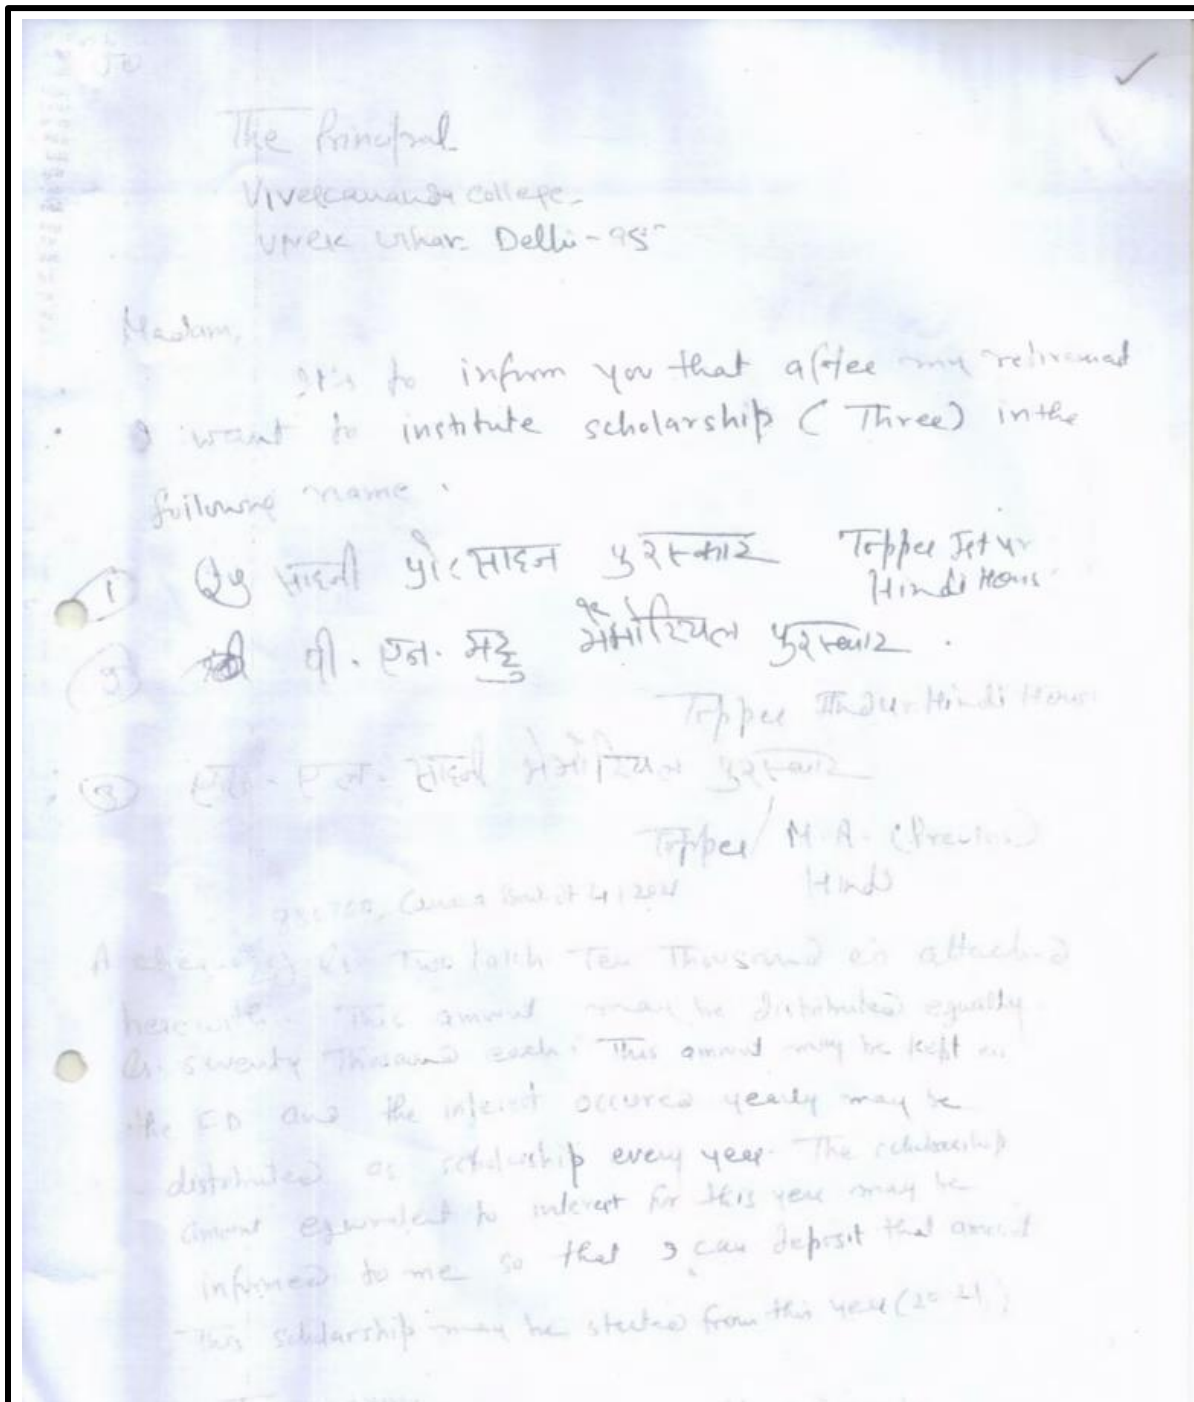 The Principal
Vivekananda college
Vivek Vihar Delhi-95
Madam,
It is to inform you that after my retirement
I want to institute scholarship ( Three) in the
following name.
1 साहनी प्रोत्साहन पुरस्कार Topper Ist yr
Hindi Hons
2 पी. एन. मट्टू मेमोरियल पुरस्कार.
Topper IInd yr Hindi Hons
3 एल. साहनी मेमोरियल पुरस्कार
Topper / M.A. (Previous)
Hindi
A cheque of Two lakh Ten Thousand is attached
herewith. This amount may be distributed equally
Rs. Seventy Thousand each. This amount may be kept in
the FD and the interest occured yearly may be
distributed as scholarship every year. The scholarship
amount equivalent to interest for this year may be
informed to me so that I can deposit that amount
This scholarship may be started from this year (2021)